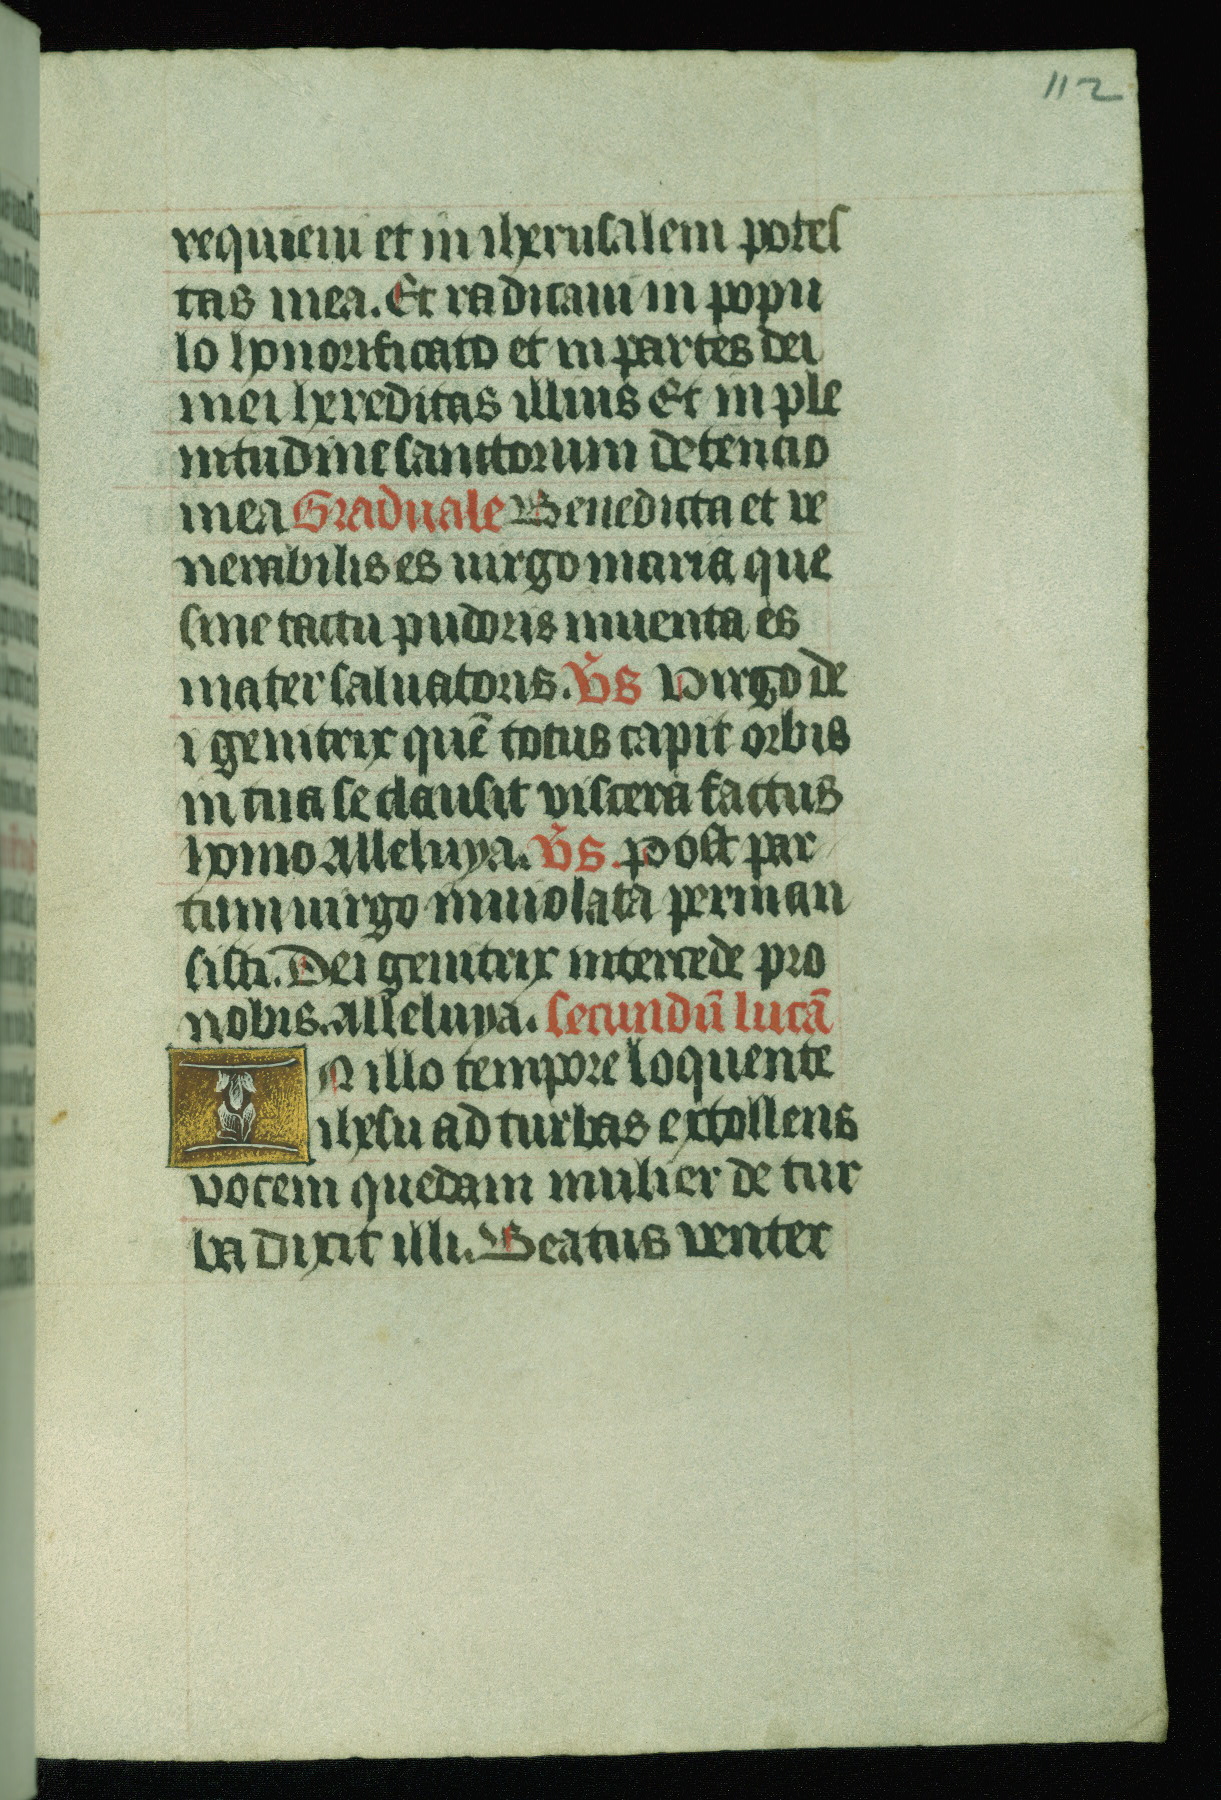 112
requieui et in iherusalem potes
tas mea. Et radicaui in popu
lo honorificato et in partes dei
mei hereditas illius Et in ple
nitudine sanctorum detencio
mea Graduale Benedicta et ve
nerabilis es uirgo maria que
sine tactu pudoris inuenta es
mater saluatoris. v̄s Virgo de
i genitrix quē totus capit orbis
in tua se clausit viscera factus
homo Alleluya. v̄s. Post par
tum uirgo inuiolata perman
sisti. Dei genitrix intercede pro
nobis. Alleluya. secundū lucā
IN illo tempore loquente
ihesu ad turbas extollens
vocem quedam mulier de tur
ba dixit illi. Beatus venter